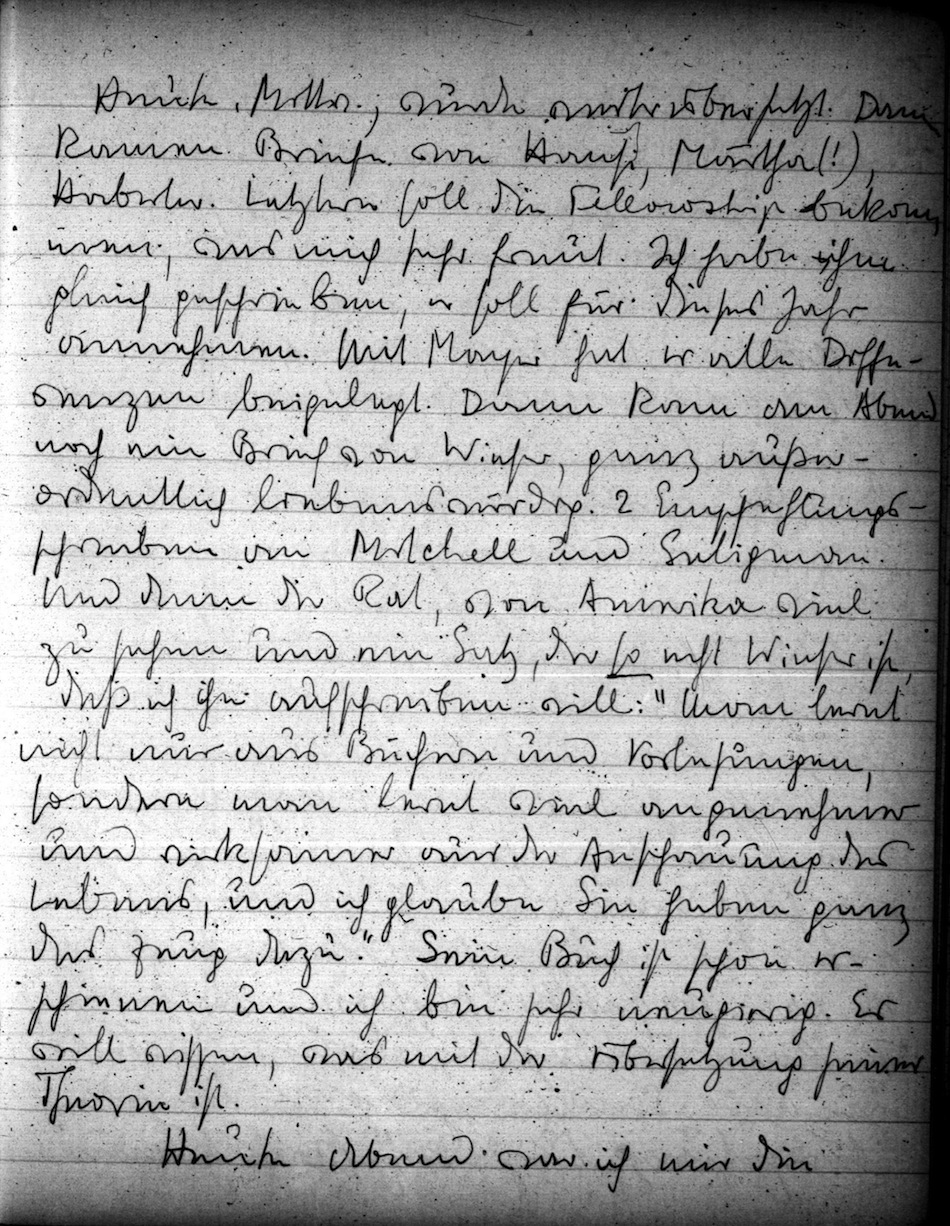 Heute, Mittw., wurde weiterübersetzt. Dann
kamen Briefe von Hansi, Märtha(!),
Haberler. Letzterer soll die Fellowship bekom-
men, was mich sehr freut. Ich habe ihm
gleich geschrieben, er soll für dieses Jahr
annehmen. Mit Mayer hat er alle Diffe-
renzen beigelegt. Dann kam am Abend
noch ein Brief von Wieser, ganz außer-
ordentlich liebenswürdig. 2 Empfehlungs-
schreiben an Mitchell und Seligman.
Und dann der Rat, von Amerika viel
zu sehen und ein Satz, der so echt Wieser ist,
daß ich ihn aufschreiben will: "Man lernt
nicht nur aus Büchern und Vorlesungen,
sondern man lernt viel angenehmer
und wirksamer aus der Anschauung des
Lebens, und ich glaube Sie haben ganz
das Zeug dazu." Sein Buch ist schon er-
schienen und ich bin sehr neugierig. Er
will wissen, was mit der Übersetzung seiner
Theorie ist.
Heute Abend war ich mir die